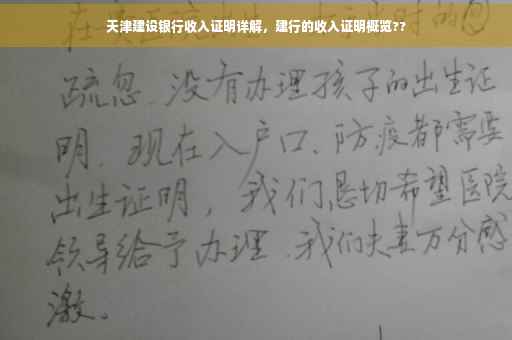 天津建设银行收入证明详解，建行的收入证明概览??
疏忽、没有办理孩子的出生证
明、现在入户口、防疫都需要
出生证明，我们恳切希望医院
领导给予办理、我们夫妻万分感
激。